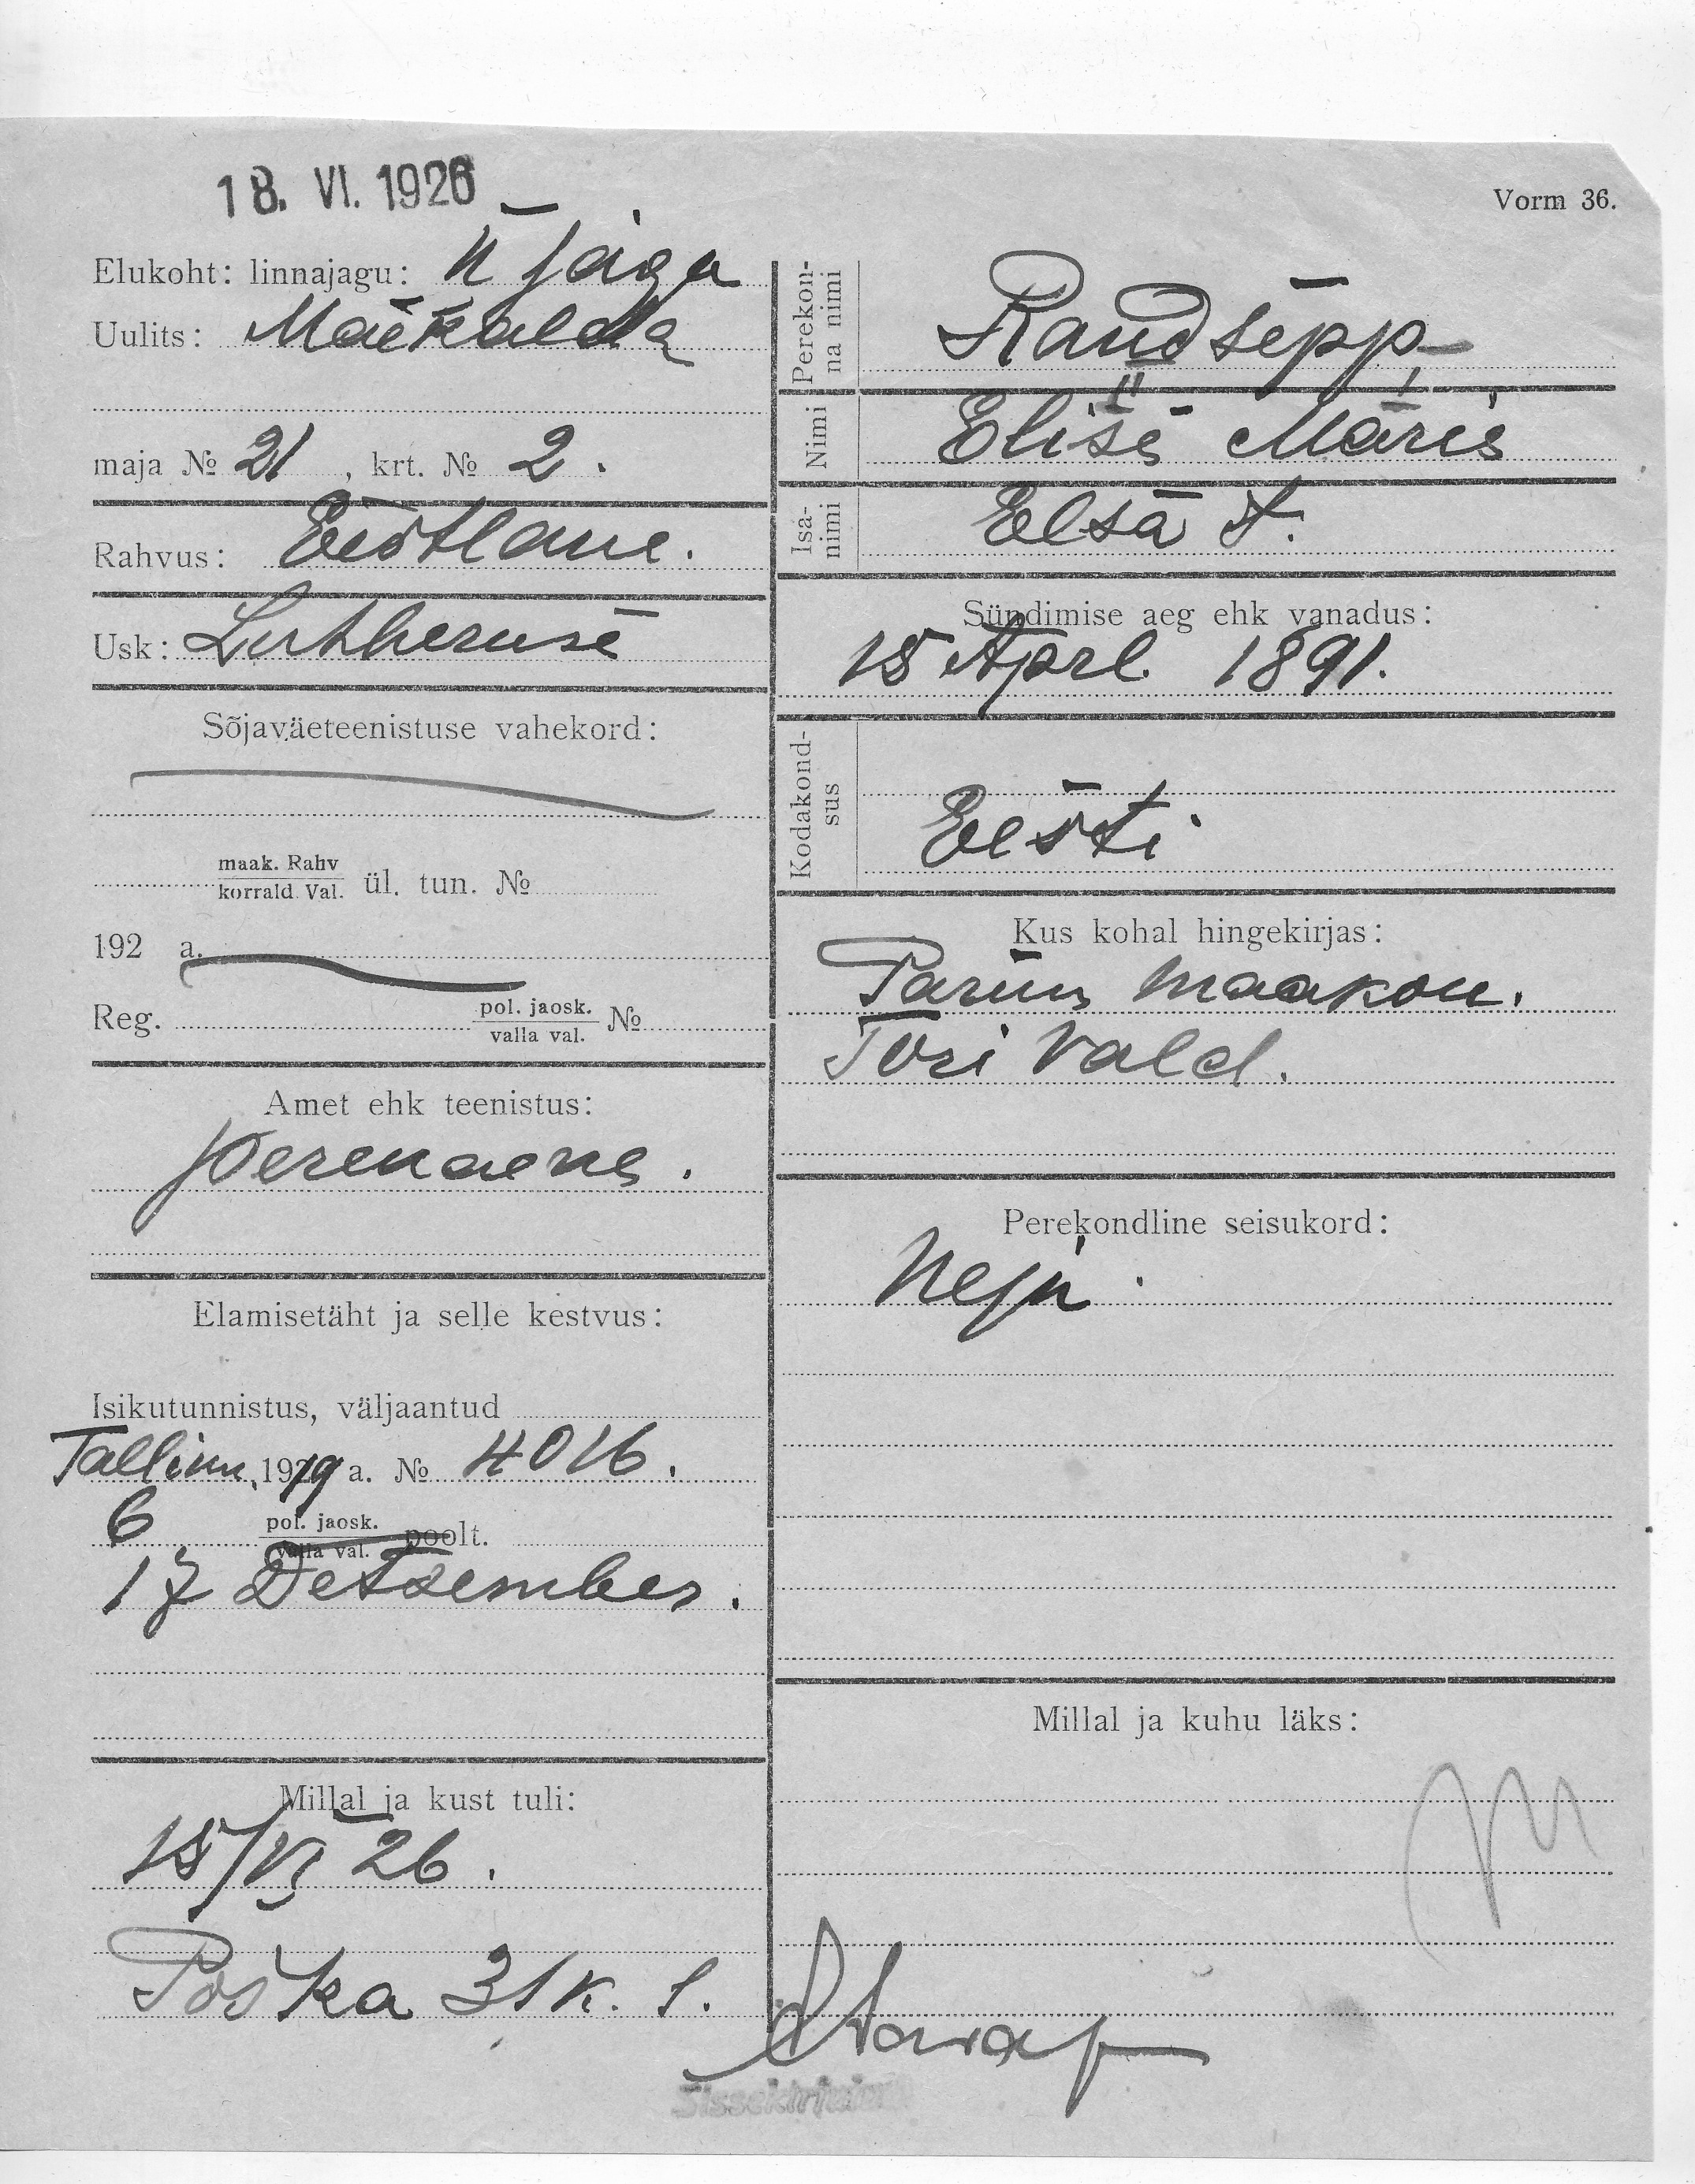 18. VI. 1926
Vorm 36.
Elukoht: linnajagu: II jaigu
Uulits: Mäekalda
maja № 21, krt. № 2.
Rahvus: Eestlane.
Usk: Lutheruse
Sõjaväeteenistuse vahekord:
maak. Rahv
korrald. Val. ül. tun. №
192 a.
Reg. pol. jaosk. №
valla val.
Amet ehk teenistus:
perenaene.
Elamisetäht ja selle kestvus:
Isikutunnistus, väljaantud
Tallinn, 1919 a. № 4016.
6 pol. jaosk. poolt.
valla val.
17 Detsember.
Millal ja kust tuli:
15/VI 26.
Poska 31 k. 1.
Perekon-
na nimi
Raudsepp
Nimi
II I
Elise Maris
Isa-
nimi
Elsa t.
Sündimise aeg ehk vanadus:
15 Aprl. 1891.
Kodakond-
sus
Eesti
Kus kohal hingekirjas:
Pärnu maakon.
Tori vald.
Perekondline seisukord:
Millal ja kuhu läks:
Sissekirjutatud